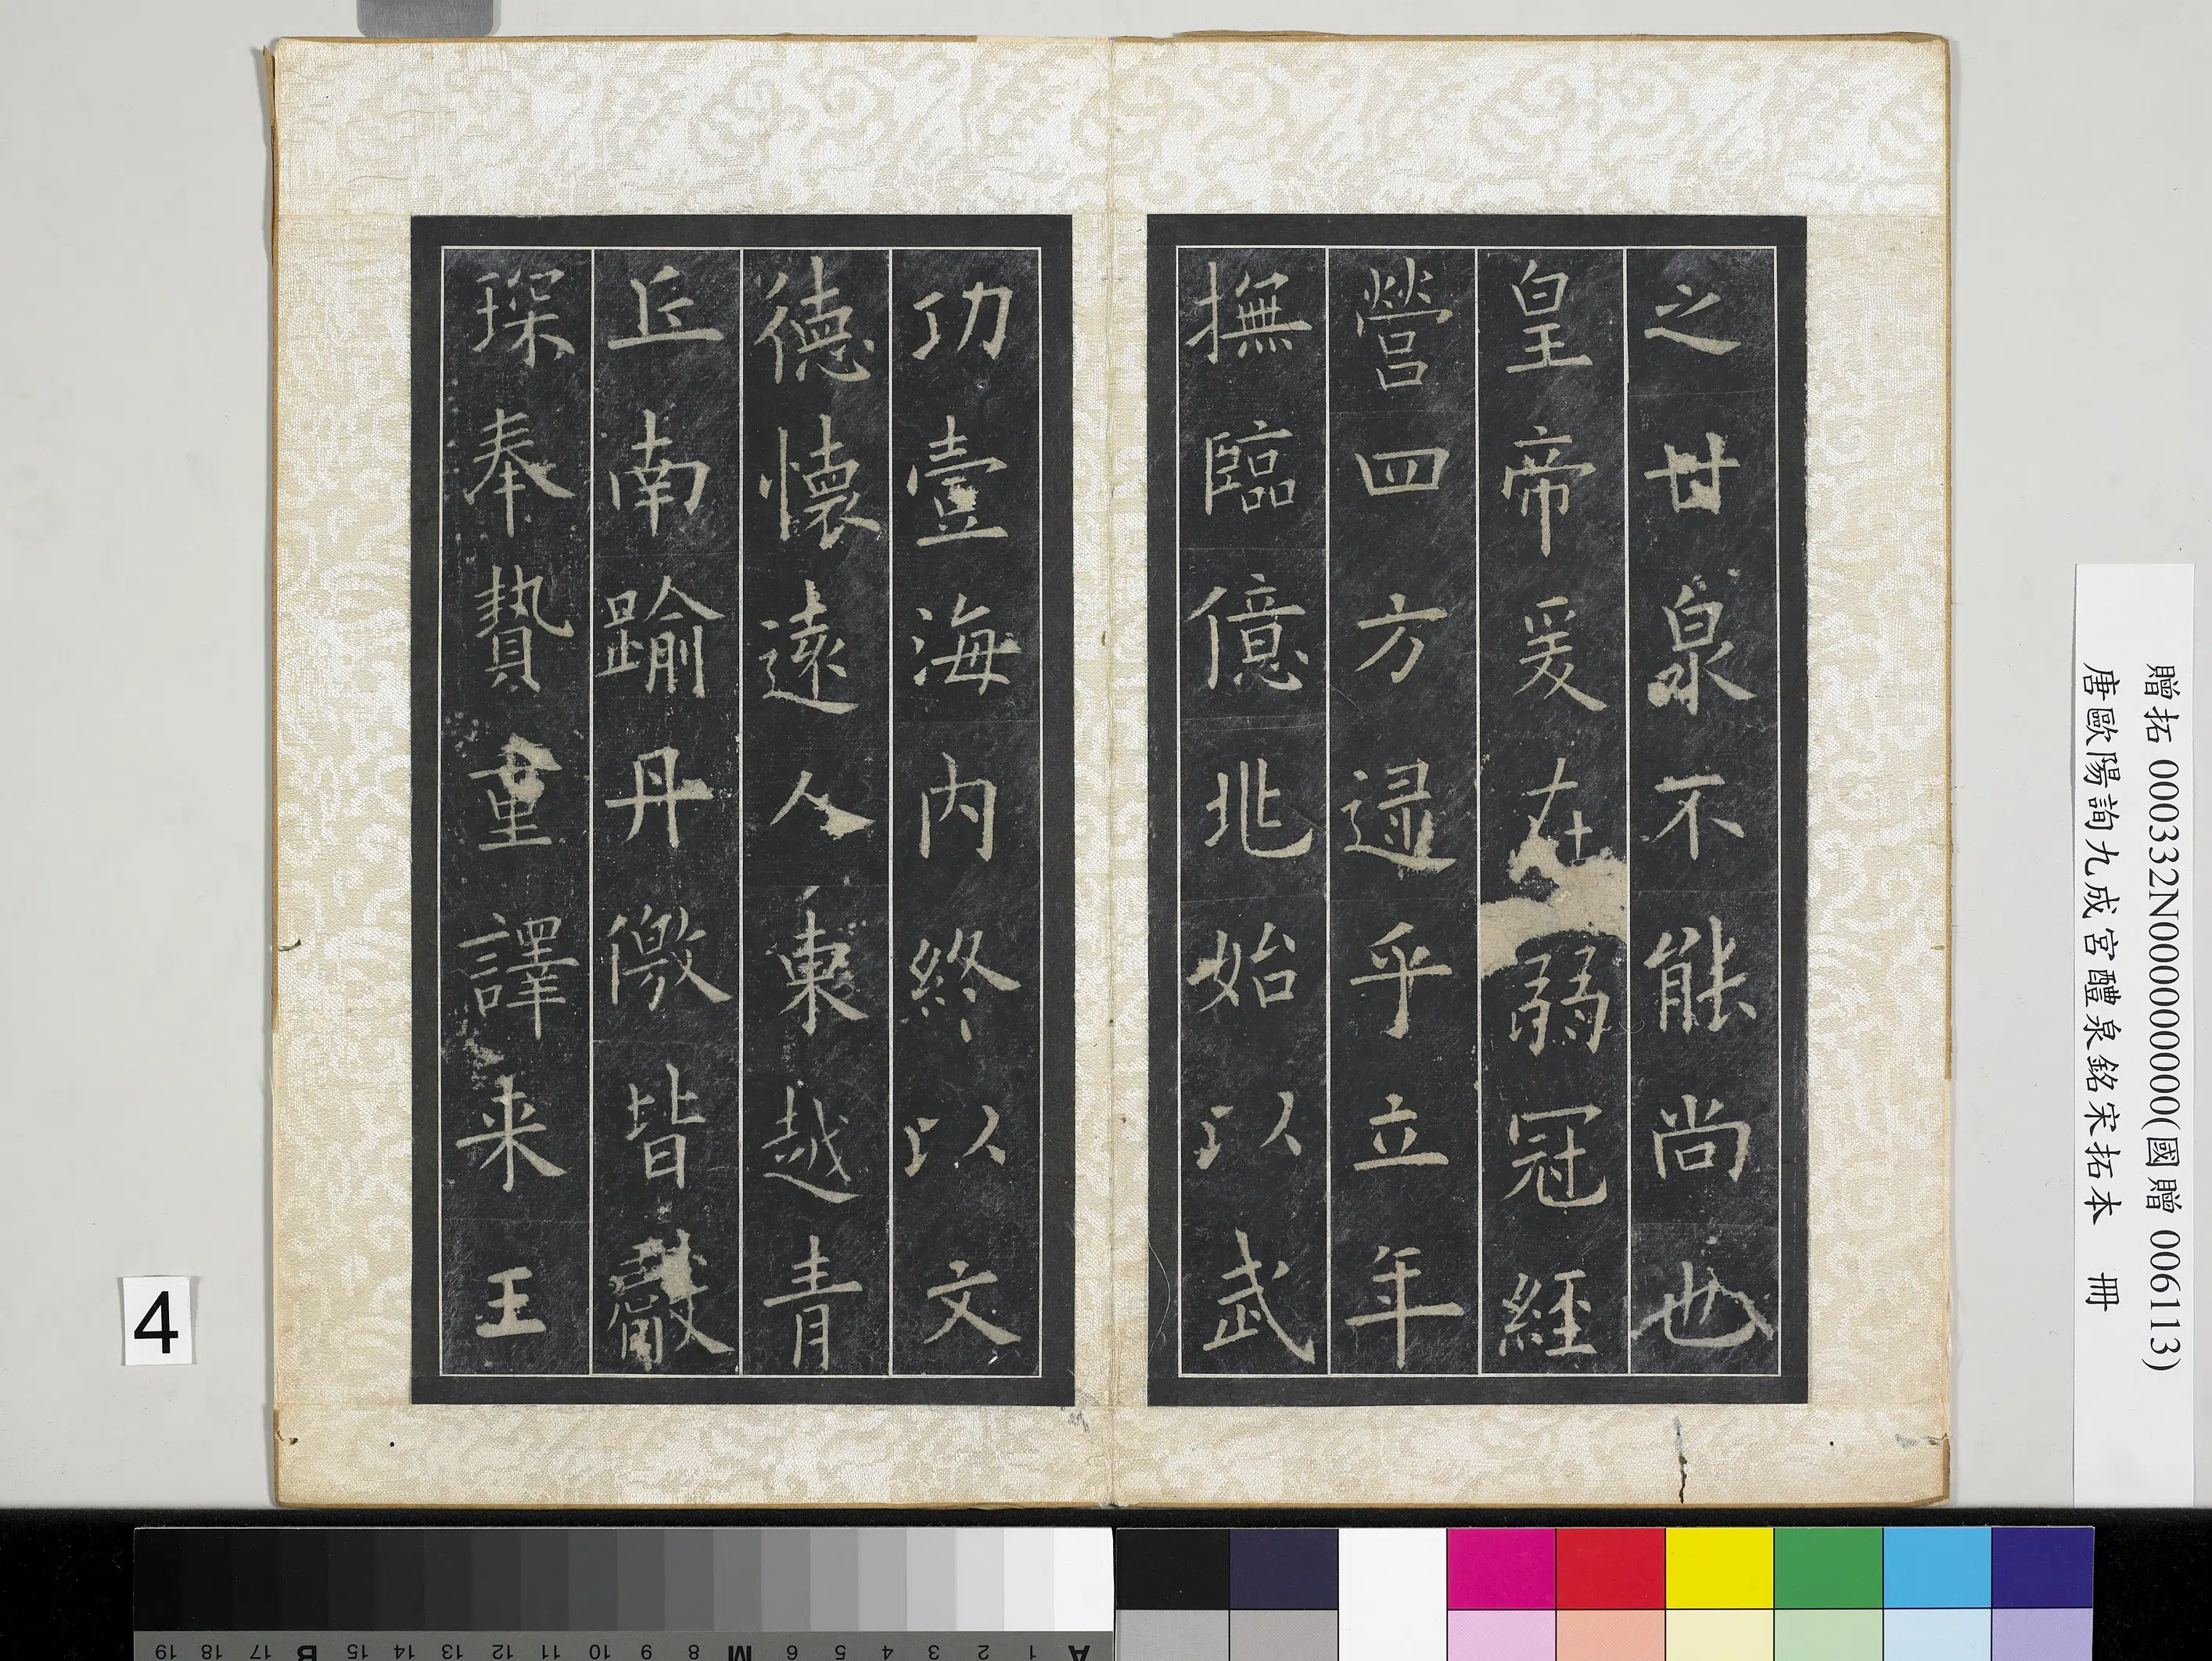 之甘泉不能尚也
皇帝爰在弱冠經
營四方逮乎立年
撫臨億兆始以武
功壹海內終以文
德懷遠人東越青
丘南踰丹徼皆獻
琛奉贄重譯来王
贈拓 000332N000000000(國贈 006113)
唐歐陽詢九成宮醴泉銘宋拓本 冊
4
A 1 2 3 4 5 6 M 8 9 10 11 12 13 14 15 B 17 18 19